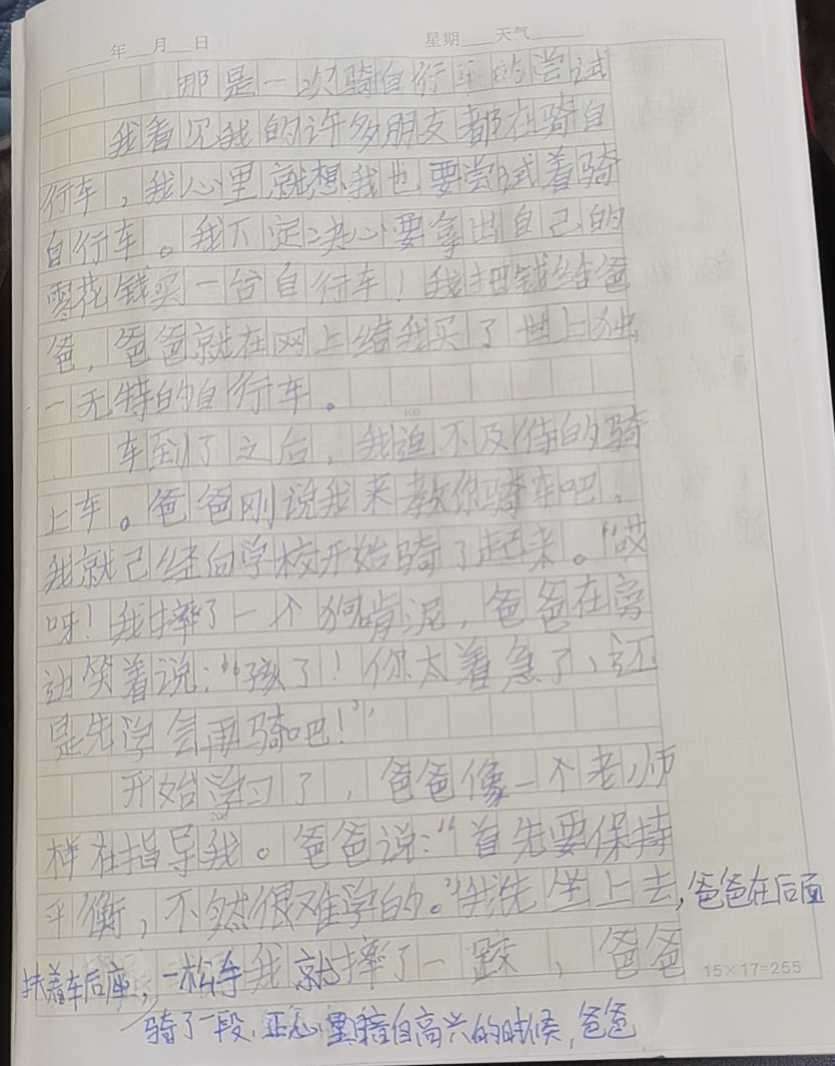 年 月 日 星期 天气
那是一次骑自行车的尝试
我看见我的许多朋友都在骑自
行车，我心里就想我也要尝试着骑
自行车。我下定决心要拿出自己的
零花钱买一台自行车！我把钱给爸
爸，爸爸就在网上给我买了世上独
一无特的自行车。
100
车到了之后，我迫不及待的骑
上车。爸爸刚说我来教你骑车吧，
我就已经向学校开始骑了起来。“哎
呀！我摔了一个狗啃泥，爸爸在旁
边笑着说：“孩了！你太着急了，还
是先学会再骑吧！”
开始学习了，爸爸像一个老师
200
样在指导我。爸爸说：“首先要保持
平衡，不然很难学的。”我先坐上去，爸爸在后面
扶着车后座，一松手我就摔了一跤，爸爸
15×17=255
骑了一段，正心里暗自高兴的时候，爸爸